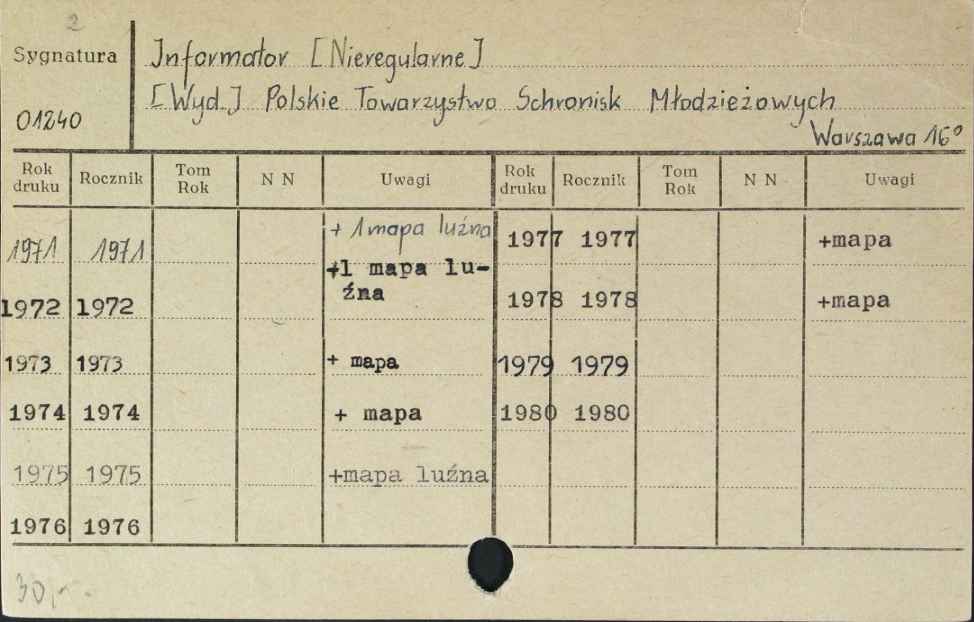 2
Sygnatura
01240
Informator [Nieregularne]
[Wyd.] Polskie Towarzystwo Schronisk Młodzieżowych
Warszawa 16°
Rok druku Rocznik Tom Rok N N Uwagi Rok druku Rocznik Tom Rok N N Uwagi
1971 1971 + 1 mapa luźna
1972 1972 +1 mapa lu-
źna
1973 1973 + mapa
1974 1974 + mapa
1975 1975 +mapa luźna
1976 1976
1977 1977 +mapa
1978 1978 +mapa
1979 1979
1980 1980
30